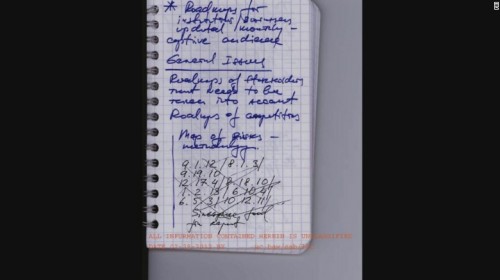 * Roadmaps for
updated monthly -
captive audience
General Issues
Roadmaps of stakeholders
must needs to be
taken into account
Roadmaps of competitors
Map of risks -
methodology.
9. 1. 12 / 8. 1. 3 /
9. 19. 10
12. 17. 4 / 8. 18. 10 /
1. 2. 3 / 6. 10. 4 /
6. 5. 3 / 10. 12. 11 /
Singapore fund
for
ALL INFORMATION CONTAINED HEREIN IS UNCLASSIFIED
CNN